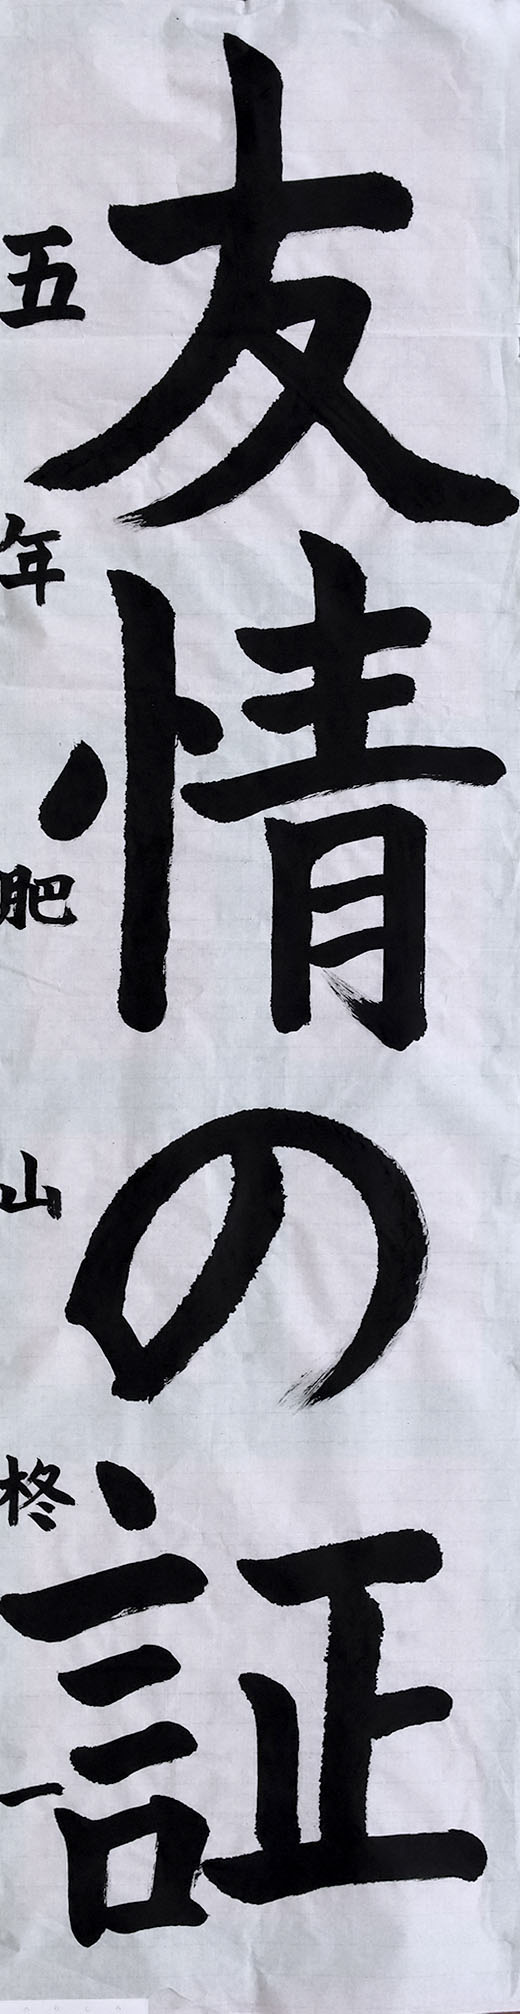 友情の証
五年肥山柊一